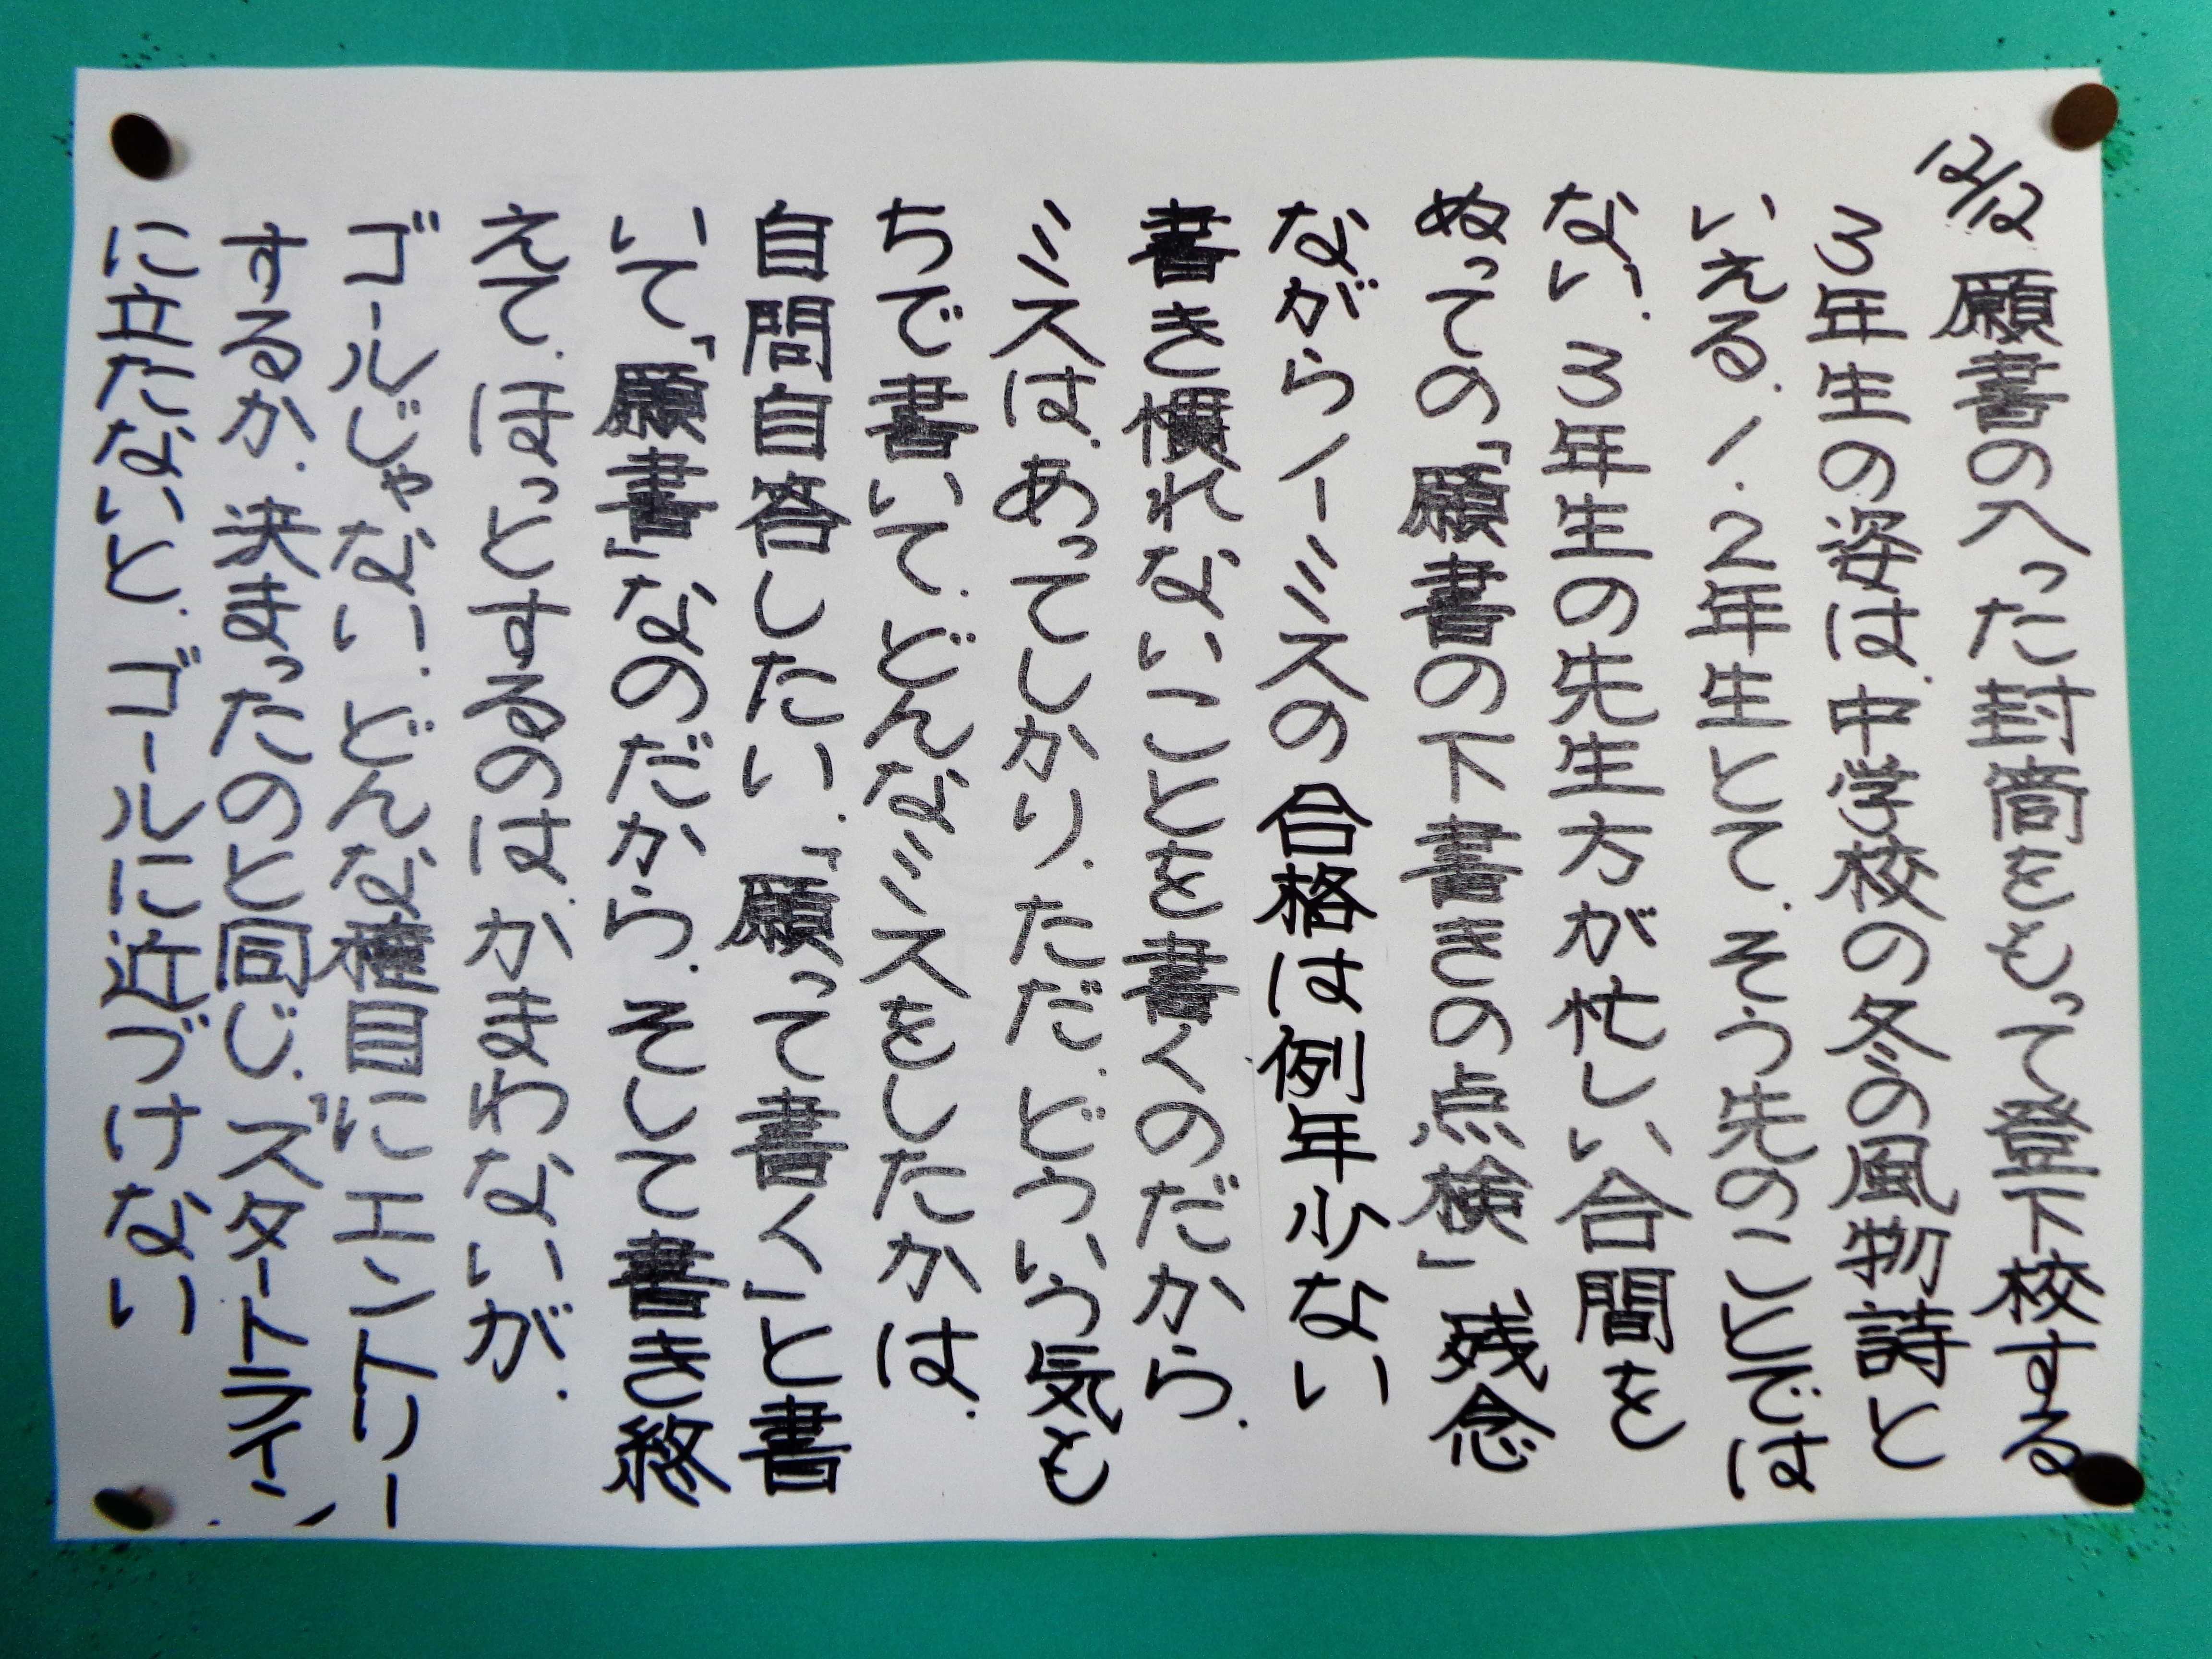 12/12 願書の入った封筒をもって登下校する
3年生の姿は、中学校の冬の風物詩と
いえる。1、2年生とて、そう先のことでは
ない。3年生の先生方が忙しい合間を
ぬっての「願書の下書きの点検」残念
ながらノーミスの合格は例年少ない
書き慣れないことを書くのだから、
ミスは、あってしかり。ただ、どういう気も
ちで書いて、どんなミスをしたかは、
自問自答したい。「願って書く」と書
いて、「願書」なのだから。そして書き終
えて、ほっとするのは、かまわないが、
ゴールじゃない。どんな種目にエントリー
するか、決まったのと同じ。スタートライン
に立たないと、ゴールに近づけない